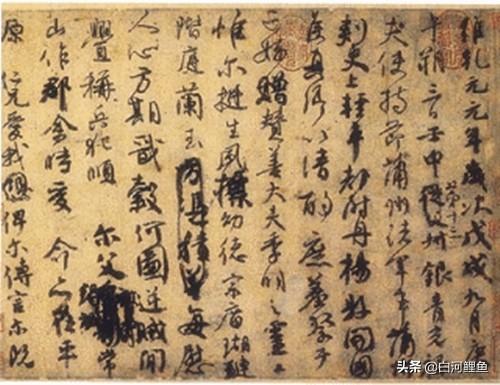 維乾元元年歲次戊戌九月庚
午朔三日壬申第十三叔銀青光
夫使持節蒲州諸軍事蒲州
刺史上輕車都尉丹楊縣開國
侯真卿以清酌庶羞祭于
亡姪贈贊善大夫季明之靈
惟爾挺生夙標幼德宗廟瑚璉
階庭蘭玉每慰
人心方期戩穀何圖逆賊開
釁稱兵犯順爾父常
山作郡余時受命亦在平
原仁兄愛我俾爾傳言爾既
头条 @白河鲤鱼